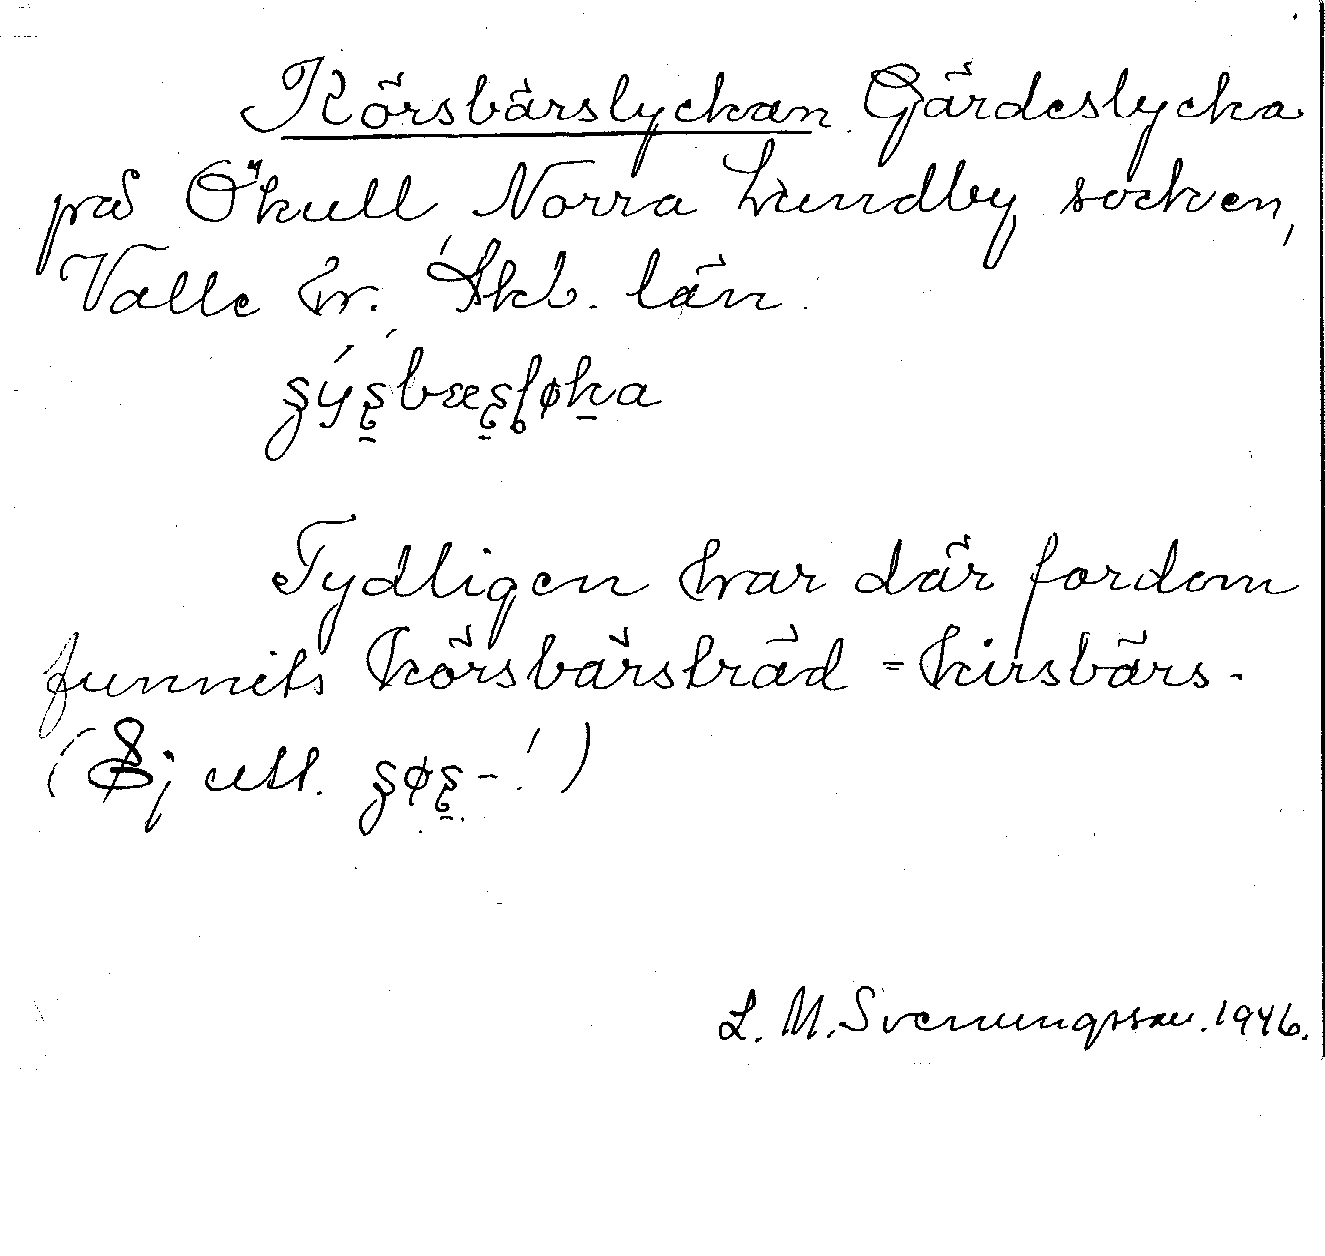 Körsbärslyckan Gärdeslycka
på Ökull, Norra Lundby socken,
Valle hr. Skb. län.
Tydligen har där fordom
funnits körsbärsträd = kirsbärs-
(Ej utt.
L. M. Svenungsson. 1946.